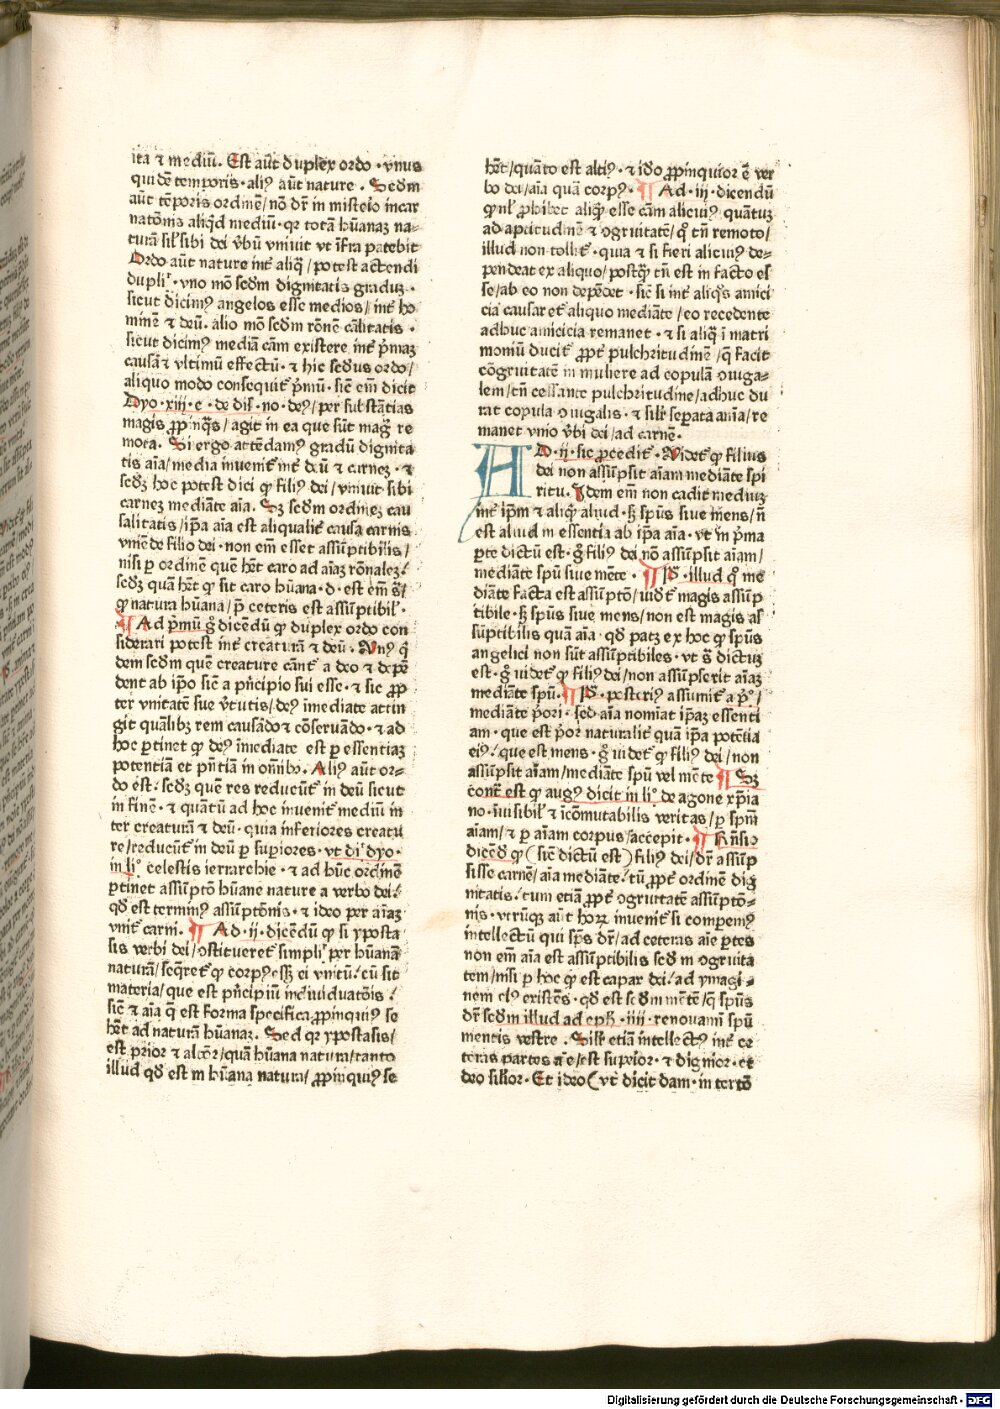 ita ⁊ mediū. Est aūt duplex ordo · vnus
quidē temporis · aliꝰ aūt nature . Scdm
aūt tēporis ordinē / nō dr̄ in misteio incar
natōnis aliqd mediū · qr totā hūanaʒ na⸗
turā sil' sibi dei v̄bū vniuit vt īfra patebit
Ordo aūt nature int̄ aliq̄ / potest attendi
duplir̄ · vno mō scdm dignitatis gradus ·
sicut dicimꝰ angelos esse medios / int̄ ho
minē ⁊ deū. alio mō scdm rōnē cālitatis ·
sicut dicimꝰ mediā cām existere int̄ p̄maʒ
causā ⁊ vltimū effectū · ⁊ hic scdus ordo /
aliquo modo consequit̄ p̄mū · sic̄ em̄ dicit
Dyo · xiii · c · de dīi · no · deꝰ / per substātias
magis ꝓpinq̄s / agit in ea que sūt maḡ re
mota. Si ergo attēdamꝰ gradū dignita
tis aīa / media inuenit̄ int̄ deū ⁊ carneʒ · ⁊
scdʒ hoc potest dici ꝙ filiꝰ dei / vniuit sibi
carneʒ mediāte aīa. Sʒ scdm ordineʒ cau
salitatis / ip̄a aīa est aliqualit̄ causa carnis
vniēde filio dei · non em̄ esset assūptibilis /
nisi ꝑ ordinē quē hēt caro ad aīaʒ rōnaleʒ /
scdʒ quā hēt ꝙ sit caro hūana · d · est em̄ s̄ /
ꝙ natura hūana / p̄ ceteris est assūptibil' ·
¶ Ad p̄mū ḡ dicēdū ꝙ duplex ordo con
siderari potest int̄ creaturā ⁊ deū . Vnꝰ q̄
dem scdm quē creature cānt̄ a deo ⁊ depē
dent ab ip̄o sic̄ a p̄ncipio sui esse · ⁊ sic ꝓp
ter vnitatē sue v̄tutis / deꝰ īmediate attin
git quālibʒ rem causādo ⁊ cōseruādo · ⁊ ad
hoc ꝑtinet ꝙ deꝰ īmediate est ꝑ essentiaʒ
potentiā et p̄ntiā in oīnibo. Aliꝰ aūt or⸗
do est / scdʒ quē res reducūt̄ in deū sicut
in finē · ⁊ quātū ad hoc inuenit̄ mediū in
ter creaturā ⁊ deū · quia inferiores creatu
re / reducūt̄ in deū ꝑ suꝑiores · vt di' dyo ·
in li° celestis ierarchie · ⁊ ad hūc ordinē
ꝑtinet assūptō hūane nature a verbo dei /
qd̄ est terminꝰ assūptōnis · ⁊ ideo per aīaʒ
vnit̄ carni. ¶ Ad · ij · dicēdū ꝙ si yposta
sis verbi dei / ↄstitueret̄ simplir̄ per hūanā
naturā / seq̄ret̄ ꝙ corpꝰ esʒ ei vnitū / cū sit
materia / que est p̄ncipiū indiuiduatōis /
sic̄ ⁊ aīa q̄ est forma specifica ꝓpinquiꝰ se
hēt ad naturā hūanaʒ. Sed qr ypostasis /
est prior ⁊ altior / quā hūana natura / tanto
illud qd̄ est in hūana natura / ꝓpinquiꝰ se
hēt / quāto est altiꝰ · ⁊ ido ꝓpinquior ē ver
bo dei / aīa quā corpꝰ · ¶ Ad · iij · dicendū
ꝙ nl' ꝓhibet aliqd̄ esse cām alicuiꝰ quātuʒ
ad aptitudinē ⁊ ↄgruitatē / q̄ tn̄ remoto /
illud non tollit̄ · quia ⁊ si fieri alicuiꝰ de⸗
pendeat ex aliquo / postq̄ tn̄ est in facto es
se / ab eo non depēdet · sic̄ si int̄ aliq̄s amici
cia causaret̄ aliquo mediāte / eo recedente
adhuc amicicia remanet · ⁊ si aliq̄ ī matri
moniū ducit̄ ꝓpt̄ pulchritudinē / q̄ facit
cōgruitatē in muliere ad copulā ↄiuga⸗
lem / tn̄ cessante pulchritudine / adhuc du
rat copula ↄiugalis · ⁊ silr̄ seꝑata aīa / re
manet vnio v̄bi dei / ad carnē ·
AD · ij · sic ꝓcedit̄ · Videt̄ ꝙ filius
dei non assūpsit aīam mediāte spi
ritu. Idem em̄ non cadit mediuʒ
int̄ ip̄m ⁊ aliqd̄ aliud · sʒ spūs siue mens / n̄
est aliud in essentia ab ip̄a aīa · vt in p̄ma
ꝑte dictū est · ḡ filiꝰ dei nō assūpsit aīam /
mediāte spū siue mēte · ¶ Pͤ · illud qd̄ me
diāte facta est assūptō / uidet̄ magis assūp
tibile · sʒ spūs siue mens / non est magis as
sūptibilis quā aīa · qd̄ patʒ ex hoc ꝙ spūs
angelici non sūt assūptibiles · vt s̄ dictuʒ
est · ḡ uidet̄ ꝙ filiꝰ dei / non assūpserit aīaʒ
mediāte spū · ¶ Pͤ · posteriꝰ assumit̄ a p̄° /
mediāte p̄ori · sed aīa nomīat ip̄aʒ essenti
am · que est p̄or naturalit̄ quā ip̄a potētia
eiꝰ / que est mens · ḡ uidet̄ ꝙ filiꝰ dei / non
assūpsit aīam / mediāte spū vel mēte ¶ Sʒ
cont̄ est ꝙ augꝰ dicit in li° de agone xp̄ia
no · īuisibil' ⁊ icōmutabilis veritas / ꝑ spm̄
aīam / ⁊ ꝑ aīam corpus / accepit · ¶ Rn̄sio
dicēd̄ ꝙ ( sic̄ dictū est ) filiꝰ dei / dr̄ assūp
sisse carnē / aīa mediāte / tū ꝓpt̄ ordinē dig
nitatis / tum etiā ꝓpt̄ ↄgruitatē assūptō⸗
nis · vtrūqʒ aūt hoꝝ inuenit̄ si comꝑemꝰ
intellectū qui sp̄s dr̄ / ad ceteras aīe ꝑtes
non em̄ aīa est assūptibilis scdm ↄgruita
tem / nisi ꝑ hoc ꝙ est capax dei / ad ymagi⸗
nem eiꝰ existēs · qd̄ est scdm mētē / q̄ spūs
dr̄ scdm illud ad eph̄ · iiij · renouamī spū
mentis vestre . Silr̄ etiā intellectꝰ int̄ ce
teras partes aīe / est suꝑior · ⁊ dignior · et
deo silior · Et ideo ( vt dicit dam · in tertō
Digitalisierung gefördert durch die Deutsche Forschungsgemeinschaft · DFG